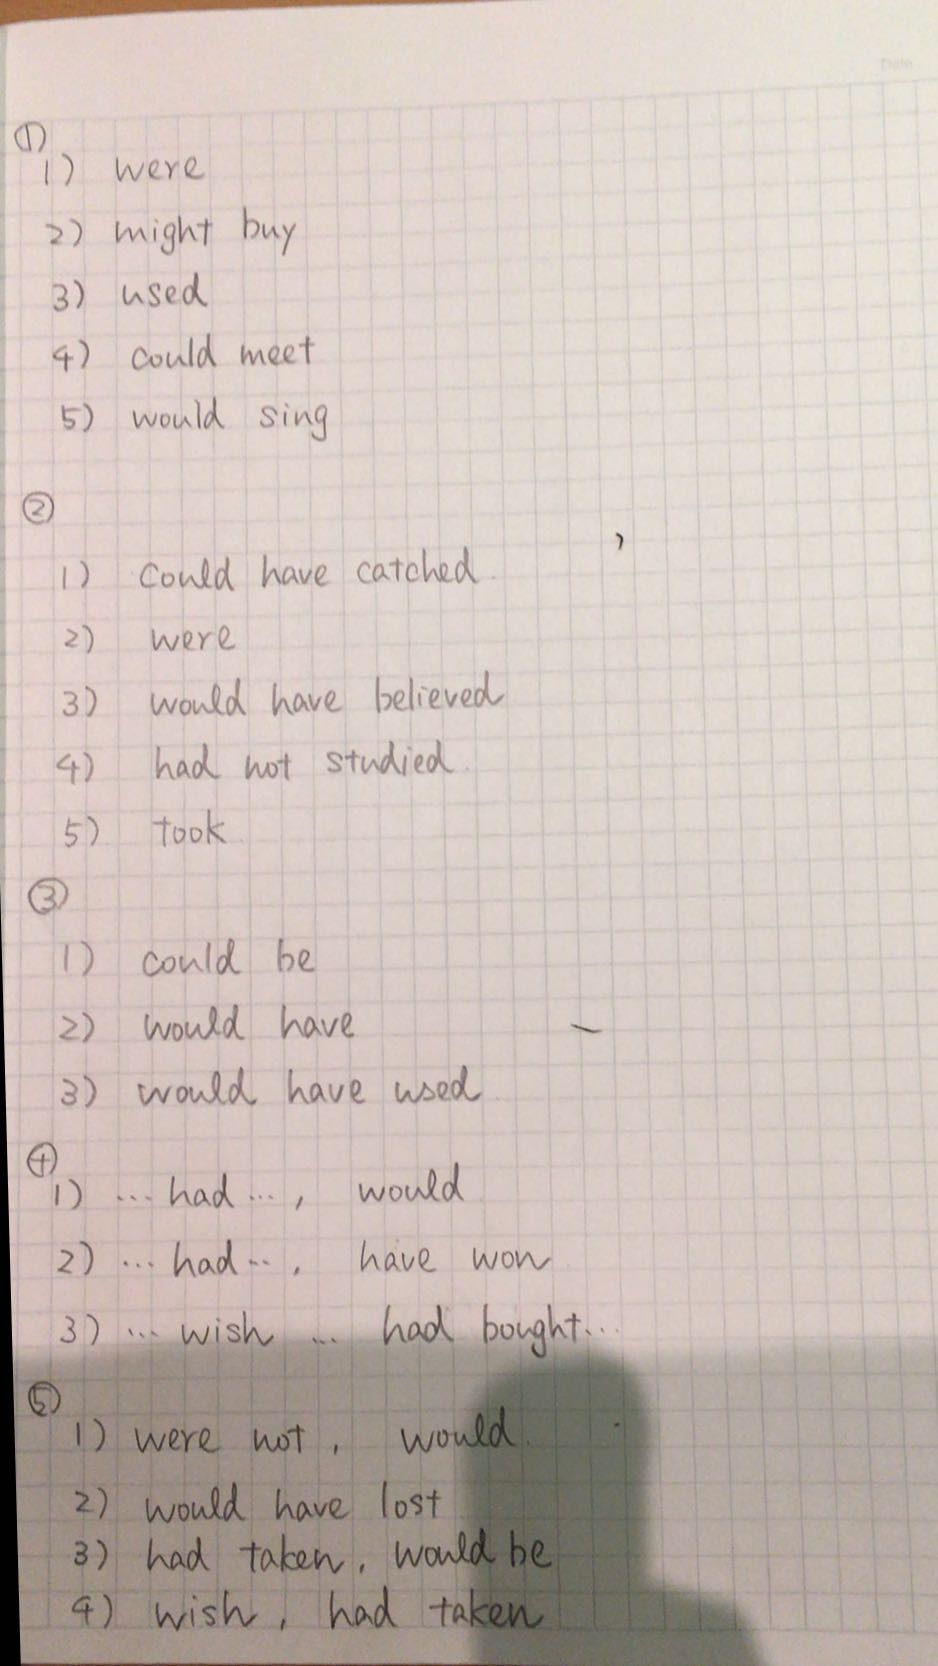 Date
①
1) were
2) might buy
3) used
4) could meet
5) would sing
②
1) could have catched.
2) were
3) would have believed
4) had not studied.
5) took
③
1) could be
2) would have
3) would have used
④
1) ... had ..., would
2) ... had ..., have won
3) ... wish ... had bought...
⑤
1) were not, would.
2) would have lost
3) had taken, would be
4) wish, had taken